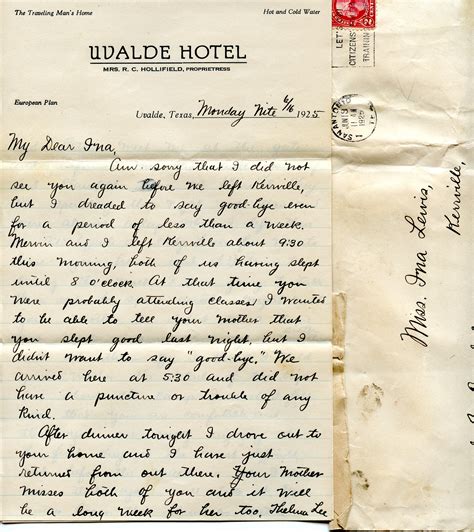 The Traveling Man's Home
Hot and Cold Water
UVALDE HOTEL
MRS. R. C. HOLLIFIELD, PROPRIETRESS
European Plan
Uvalde, Texas, Monday Nite 6/16 1925
My Dear Ina,
Am sorry that I did not
see you again before we left Kerrville,
but I dreaded to say good-bye even
for a period of less than a week.
Mervin and I left Kerrville about 9:30
this morning, both of us having slept
until 8 o'clock. At that time you
were probably attending classes. I wanted
to be able to tell your mother that
you slept good last night, but I
didn't want to say "good-bye." We
arrived here at 5:30 and did not
have a puncture or trouble of any
kind.
After dinner tonight I drove out to
your home and I have just
returned from out there. Your Mother
misses both of you and it will
be a long week for her too, Thelma Lee
LET'S
CITIZENS
TRAINING
SAN ANTONIO
JUN
11 AM
1925
TEX.
Miss. Ina Lewis,
Kerrville,